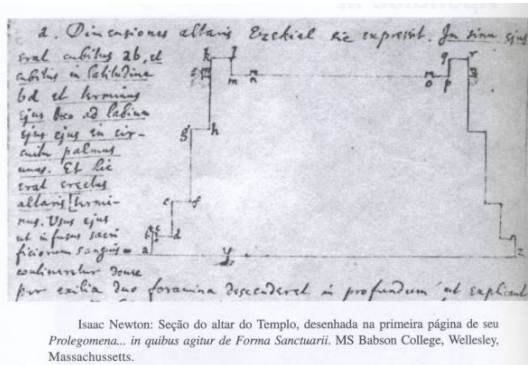 2. Dimensiones altaris Ezekiel sic expressit. In sinu ejus
erat cubitus ab, et
cubitus in latitudine
bd et terminus
ejus ad labium
ejus in cir-
cuitu palmus
unus. Et hic
erat
altaris termi-
nus. Usus ejus
ut infusus sacri
ficiorum sanguis
contineretur donec
per exilia duo foramina descenderet in profundum ut explicant
k l
m n
g h
e f
c d
a
y
q r
m
o p
z
Isaac Newton: Seção do altar do Templo, desenhada na primeira página de seu
Prolegomena... in quibus agitur de Forma Sanctuarii. MS Babson College, Wellesley,
Massachussetts.